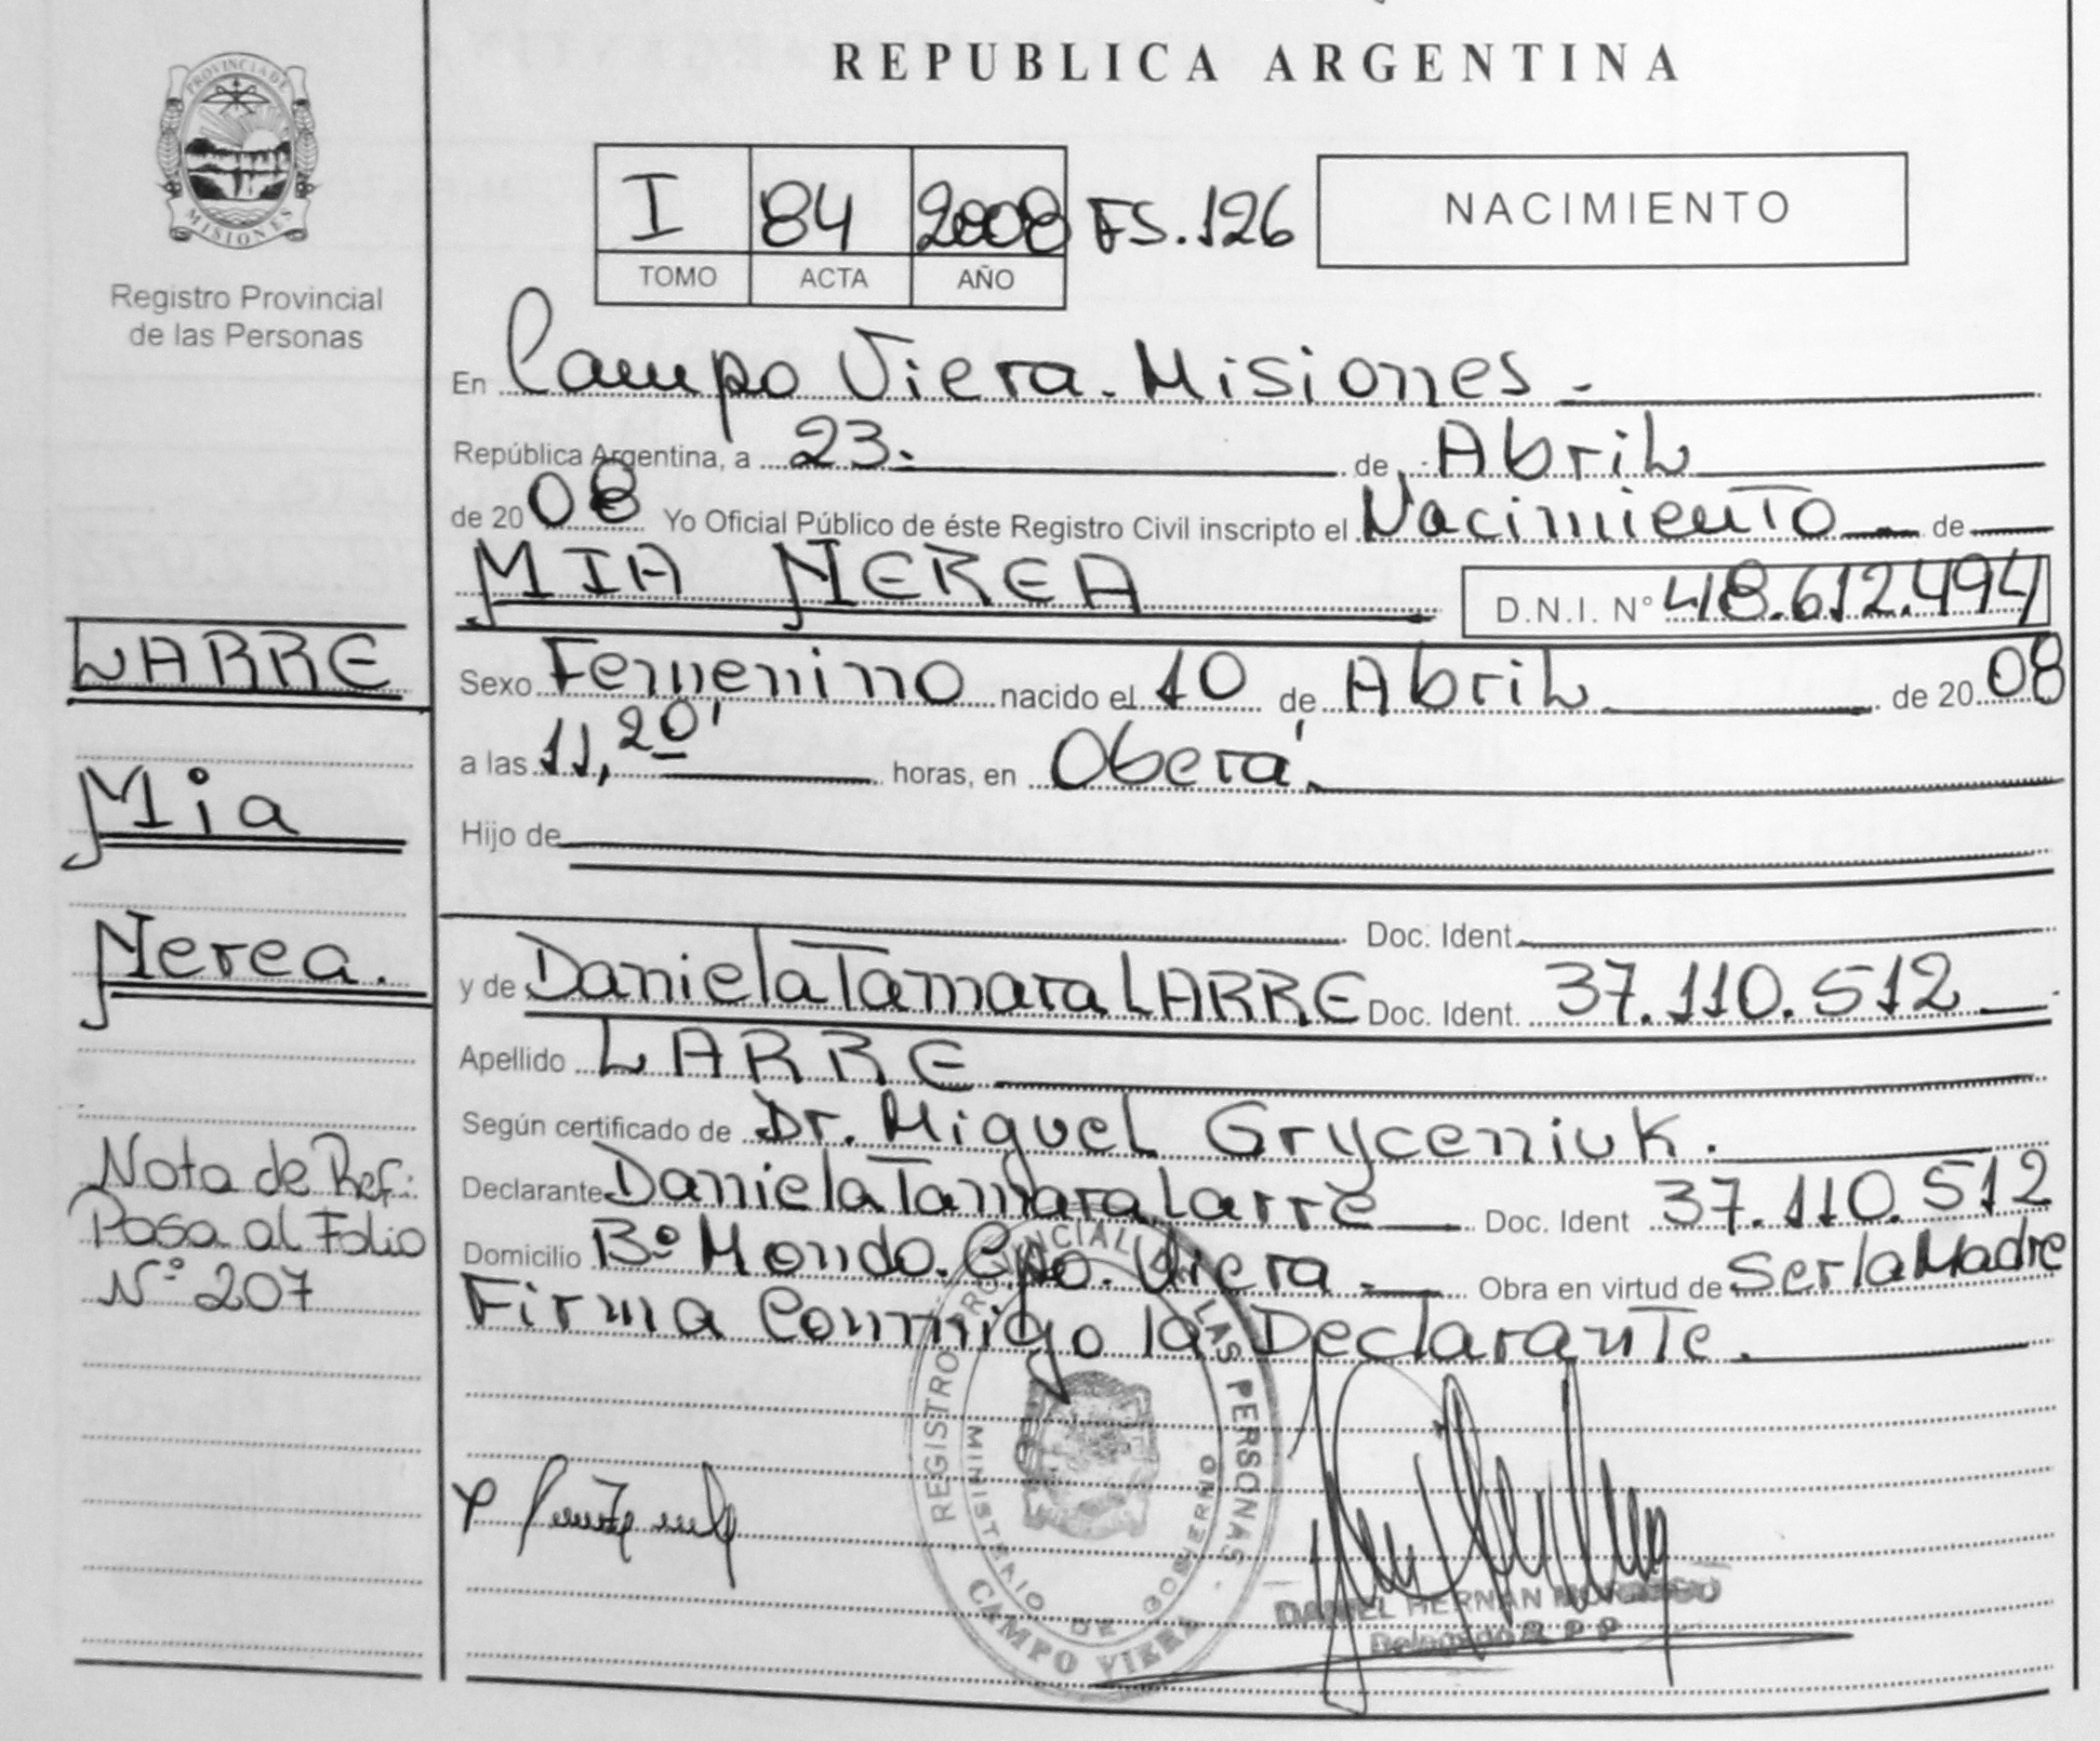 PROVINCIA DE
MISIONES
Registro Provincial
de las Personas
LARRE
Mia
Nerea.
Nota de Ref:
Pasa al Folio
N° 207
REPUBLICA ARGENTINA
I 84 2008 FS.126
TOMO ACTA AÑO
NACIMIENTO
En Campo Viera. Misiones.-
República Argentina, a 23. de Abril
de 2008 Yo Oficial Público de éste Registro Civil inscripto el Nacimiento de
MIA NEREA D.N.I. N° 48.612.494
Sexo Femenino nacido el 10 de Abril de 2008
a las 11,20' horas, en Oberá.
Hijo de
Doc. Ident.
y de Daniela Tamara LARRE Doc. Ident. 37.110.512
Apellido LARRE
Según certificado de Dr. Miguel Gryceniuk.
Declarante Daniela Tamara Larre Doc. Ident 37.110.512
Domicilio B° Mondo. Cpo. Viera. Obra en virtud de Ser la Madre
Firma Conmigo la Declarante.
REGISTRO PROVINCIAL DE LAS PERSONAS
MINISTERIO DE GOBIERNO
CAMPO VIERA
DANIEL HERNAN
Delegado R P P